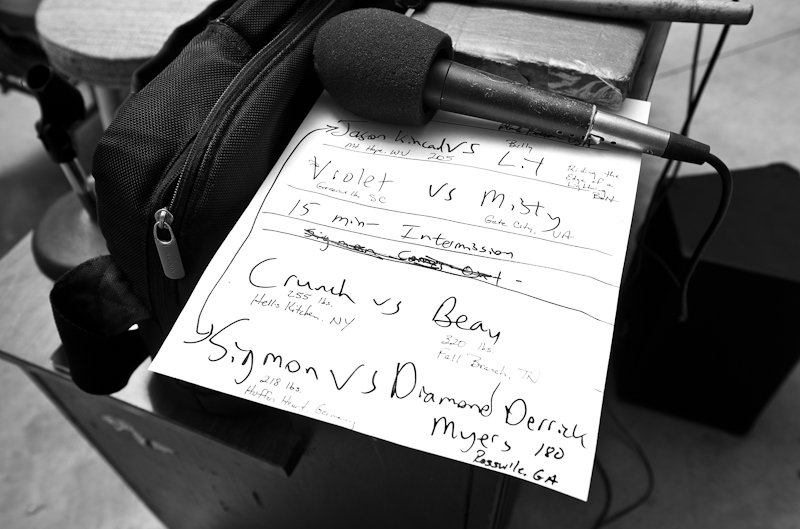 Jason Kincad vs Billy Lit
Mt. Hope, WV 205
Riding the
Edge of a
Lightning
Bolt
Violet vs Misty
Greenville, SC Gate City, VA
15 min- Intermission
Sigmon Comes Out -
Crunch vs Beay
255 lbs. 320 lbs.
Hells Kitchen, NY Fall Branch, TN
Sigmon vs Diamond Derrick
218 lbs. Myers 180
Germany Rossville, GA